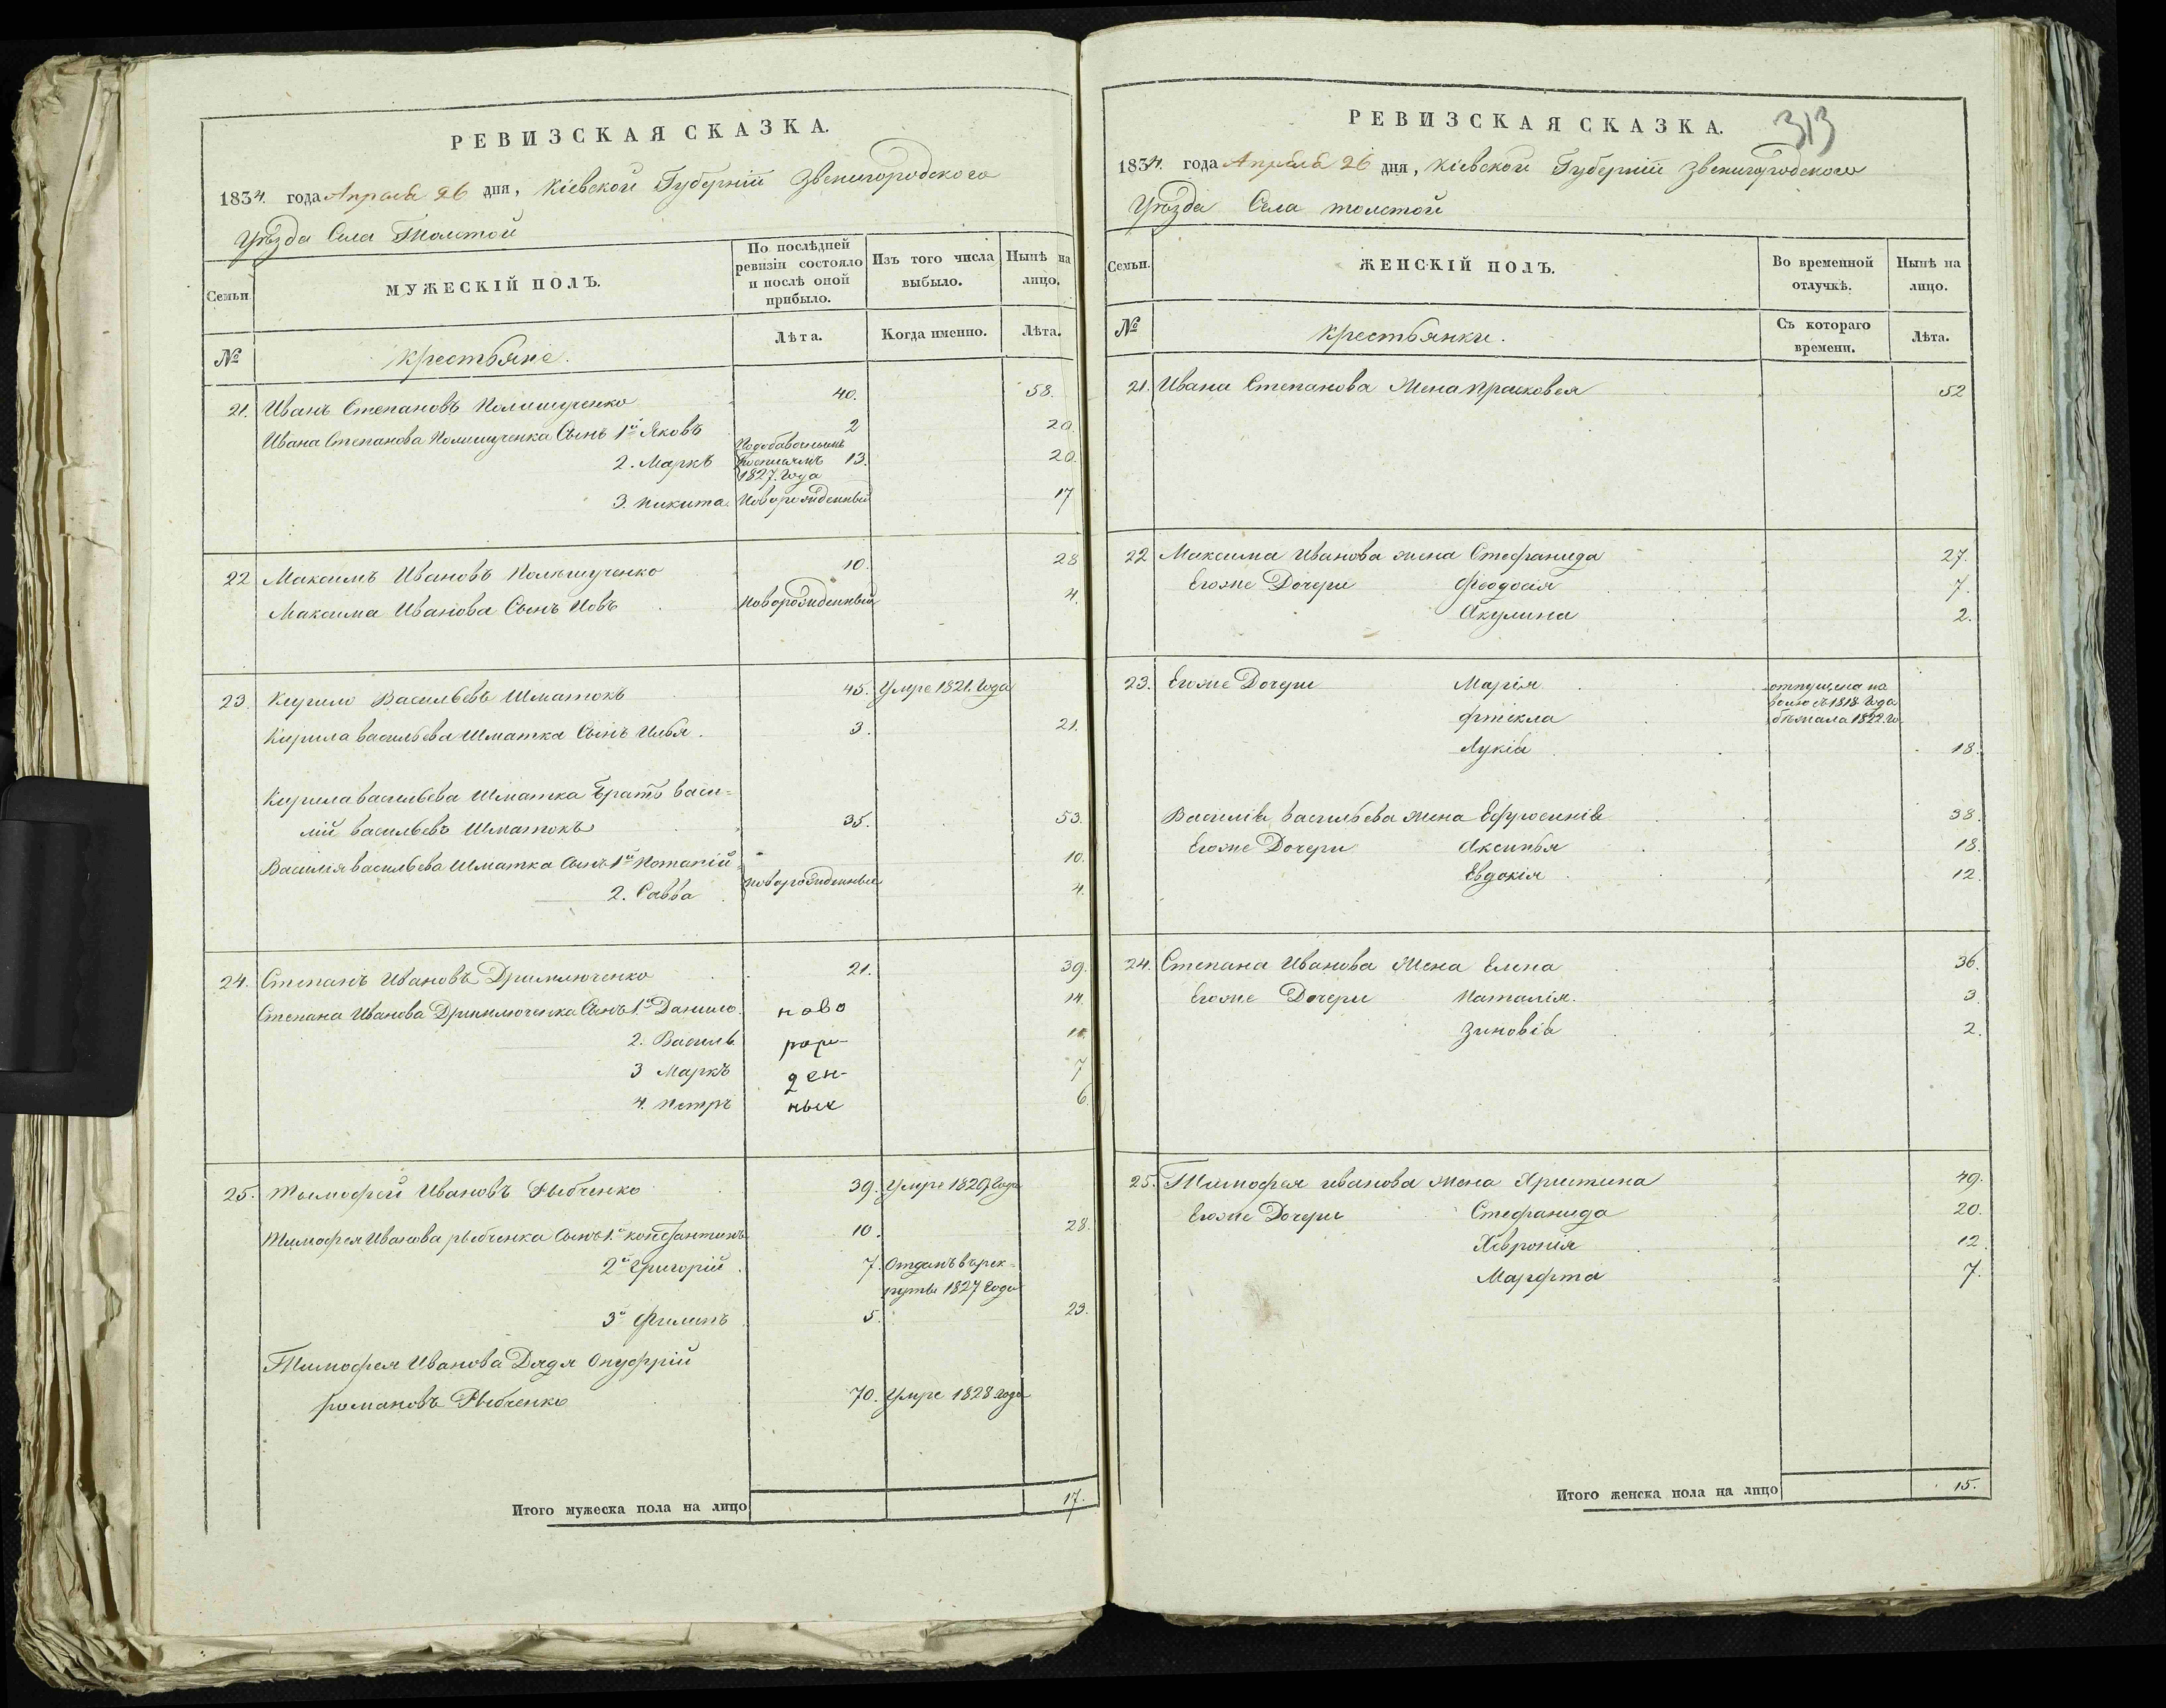 РЕВИЗСКАЯ СКАЗКА.
1834. года Апреля 26 дня, Кіевской Губерніи Звенигородского
Уѣзда Села Толстой
Семьи.
МУЖЕСКІЙ ПОЛЪ.
По послѣдней ревизіи состояло и послѣ оной прибыло.
Изъ того числа выбыло.
Нынѣ на лицо.
№
Крестьяне.
Лѣта.
Когда именно.
Лѣта.
21. Иванъ Степановъ Полишученко 40. 58.
Ивана Степанова Полишученка Сынъ 1й Яковъ 2 20.
2. Маркъ По добавочнымъ 13. 20.
1827. Года
3. Никита Новорожденный 17
22 Максимъ Ивановъ Полишученко 10. 28
Максима Иванова Сынъ Иовъ Новорожденный 4.
23. Кирило Васильевъ Шматокъ 45. Умре 1821. Года
Кирила Васильева Шматка Сынъ Илья. 3. 21.
Кирила васильева Шматка Братъ Васи=
лій васильевъ Шматокъ 35. 53.
Василія васильева Шматка Сынъ 1й Потапій 10.
2. Савва новорожденные 4.
24. Степанъ Ивановъ Дримлюченко 21. 39.
Степана Иванова Дримлюченка Сынъ 1й Данило. ново 14.
2. Василь рож-
3 Маркъ ден- 7
4. Петръ ные 6.
25. Тимофей Ивановъ Рыбченко 39. Умре 1829 Года
Тимофея Иванова рыбченка Сынъ 1й Константинъ 10. 28.
2й Григорій 7. Отданъ в рек=
руты 1827 Года
3й Филипъ 5. 23.
Тимофея Иванова Дядя Онуфрій
романовъ Рыбченко 70. Умре 1828 года
Итого мужеска пола на лицо 17.
РЕВИЗСКАЯ СКАЗКА.
313
1834. года Апреля 26 дня, Кіевской Губерніи Звенигородского
Уѣзда Села толстой
Семьи.
ЖЕНСКІЙ ПОЛЪ.
Во временной отлучкѣ.
Нынѣ на лицо.
№
Крестьянки.
Съ котораго времени.
Лѣта.
21. Ивана Степанова Жена Прасковея 52
22 Максима Иванова жена Стефанида 27.
Егоже Дочери Феодосія 7.
Акулина 2.
23. Егоже Дочери Марія отпущена на
волю съ 1818 Года
Фтекла бѣжала 1822. го
Лукія 18.
Василія васильева жена Ефросинія 38.
Егоже Дочери Аксинья 18.
Евдокія 12.
24. Степана Иванова Жена Елена 36.
Егоже Дочери Наталія. 3
Зиновія 2.
25. Тимофея иванова жена Христина 49.
Егоже Дочери Стефанида 20.
Хевронія 12.
Марфта 7.
Итого женска пола на лицо 15.